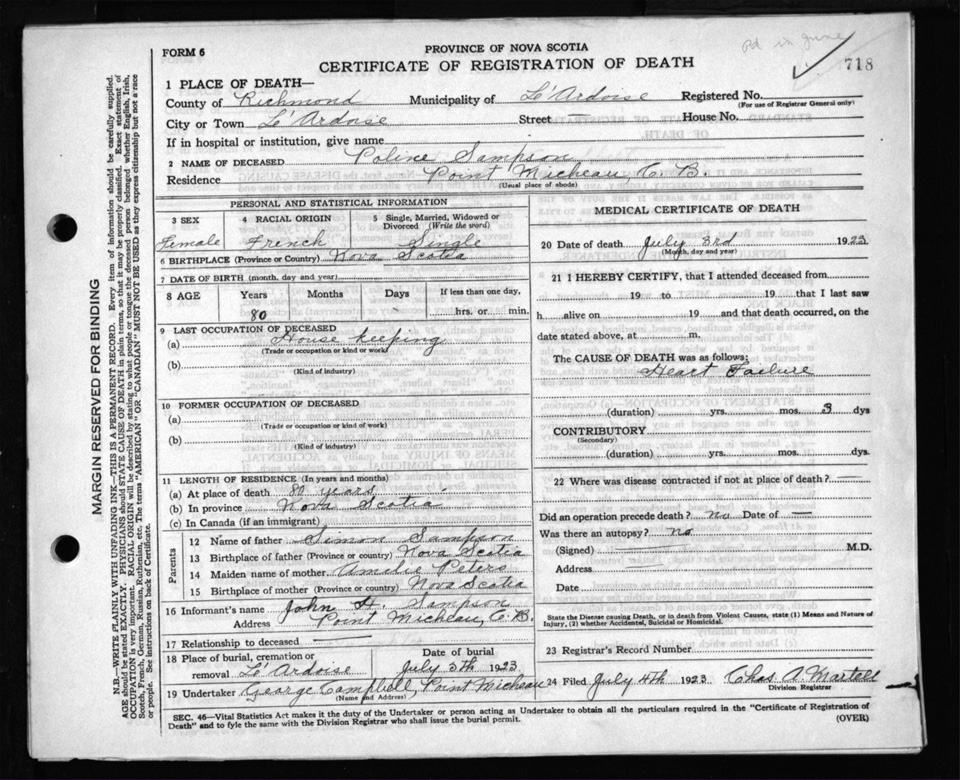 Pd in June
FORM 6
PROVINCE OF NOVA SCOTIA
CERTIFICATE OF REGISTRATION OF DEATH
718
1 PLACE OF DEATH—
County of Richmond Municipality of Le'Ardoise Registered No.
(For use of Registrar General only)
City or Town Le'Ardoise Street House No.
If in hospital or institution, give name
2 NAME OF DECEASED Poline Sampson
Residence Point Micheau, C. B.
(Usual place of abode)
PERSONAL AND STATISTICAL INFORMATION
3 SEX 4 RACIAL ORIGIN 5 Single, Married, Widowed or Divorced (Write the word)
Female French Single
6 BIRTHPLACE (Province or Country) Nova Scotia
7 DATE OF BIRTH (month, day and year)
8 AGE Years Months Days If less than one day,
80 - hrs. or min.
9 LAST OCCUPATION OF DECEASED
(a) House keeping
(Trade or occupation or kind of work)
(b)
(Kind of industry)
10 FORMER OCCUPATION OF DECEASED
(a)
(Trade or occupation or kind of work)
(b)
(Kind of industry)
11 LENGTH OF RESIDENCE (In years and months)
(a) At place of death 80 years
(b) In province Nova Scotia
(c) In Canada (if an immigrant)
Parents
12 Name of father Simon Sampson
13 Birthplace of father (Province or country) Nova Scotia
14 Maiden name of mother Amelie Peters
15 Birthplace of mother (Province or country) Nova Scotia
16 Informant's name John H. Sampson
Address Point Micheau, C. B.
17 Relationship to deceased
18 Place of burial, cremation or removal Le'Ardoise Date of burial July 5th 1923
19 Undertaker George Campbell, Point Micheau
(Name and Address)
MEDICAL CERTIFICATE OF DEATH
20 Date of death July 3rd 1923
(Month, day and year)
21 I HEREBY CERTIFY, that I attended deceased from
19 to 19 that I last saw
h alive on 19 and that death occurred, on the
date stated above, at m.
The CAUSE OF DEATH was as follows:
Heart Failure
(duration) yrs. mos. 3 dys
CONTRIBUTORY
(Secondary)
(duration) yrs. mos. dys.
22 Where was disease contracted if not at place of death? —
Did an operation precede death? no Date of —
Was there an autopsy? no
(Signed) M.D.
Address
Date
State the Disease causing Death, or in death from Violent Causes, state (1) Means and Nature of Injury, (2) whether Accidental, Suicidal or Homicidal.
23 Registrar's Record Number
24 Filed July 4th 1923 Chas A Martell
Division Registrar
SEC. 46—Vital Statistics Act makes it the duty of the Undertaker or person acting as Undertaker to obtain all the particulars required in the "Certificate of Registration of
Death" and to fyle the same with the Division Registrar who shall issue the burial permit.
(OVER)
MARGIN RESERVED FOR BINDING
N.B.—WRITE PLAINLY WITH UNFADING INK—THIS IS A PERMANENT RECORD. Every item of information should be carefully supplied.
AGE should be stated EXACTLY. PHYSICIANS should STATE CAUSE OF DEATH in plain terms, so that it may be properly classified. Exact statement of
OCCUPATION is very important. RACIAL ORIGIN will be described by stating to what people or tongue the deceased person belonged whether English, Irish,
Scotch, French, German, Russian, Ruthenian, etc. The terms "AMERICAN" OR "CANADIAN" MUST NOT BE USED as they express citizenship but not a race
or people. See instructions on back of Certificate.